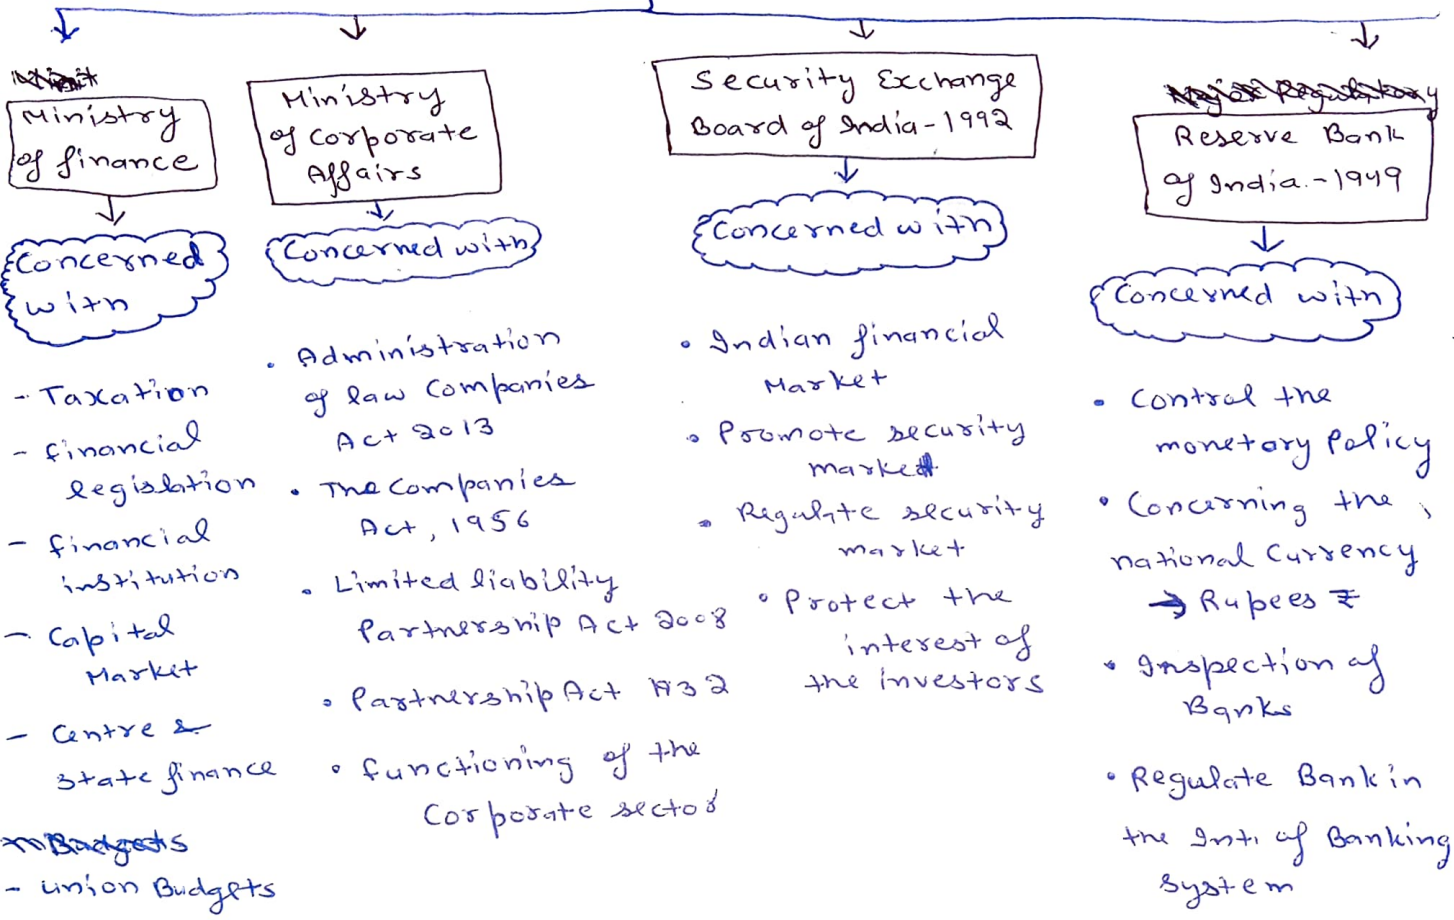 Ministry
of finance
Concerned
with
- Taxation
- financial
legislation
- financial
institution
- Capital
Market
- Centre &
state finance
- Union Budgets
Ministry
of Corporate
Affairs
Concerned with
• Administration
of law Companies
Act 2013
• The Companies
Act, 1956
• Limited liability
Partnership Act 2008
• Partnership Act 1932
• functioning of the
Corporate sector
Security Exchange
Board of India - 1992
Concerned with
• Indian financial
Market
• Promote security
market
• Regulate security
market
• Protect the
interest of
the investors
Reserve Bank
of India. - 1949
Concerned with
• Control the
monetory Policy
• Concerning the
national Currency
→ Rupees ₹
• Inspection of
Banks
• Regulate Bank in
the Int. of Banking
System